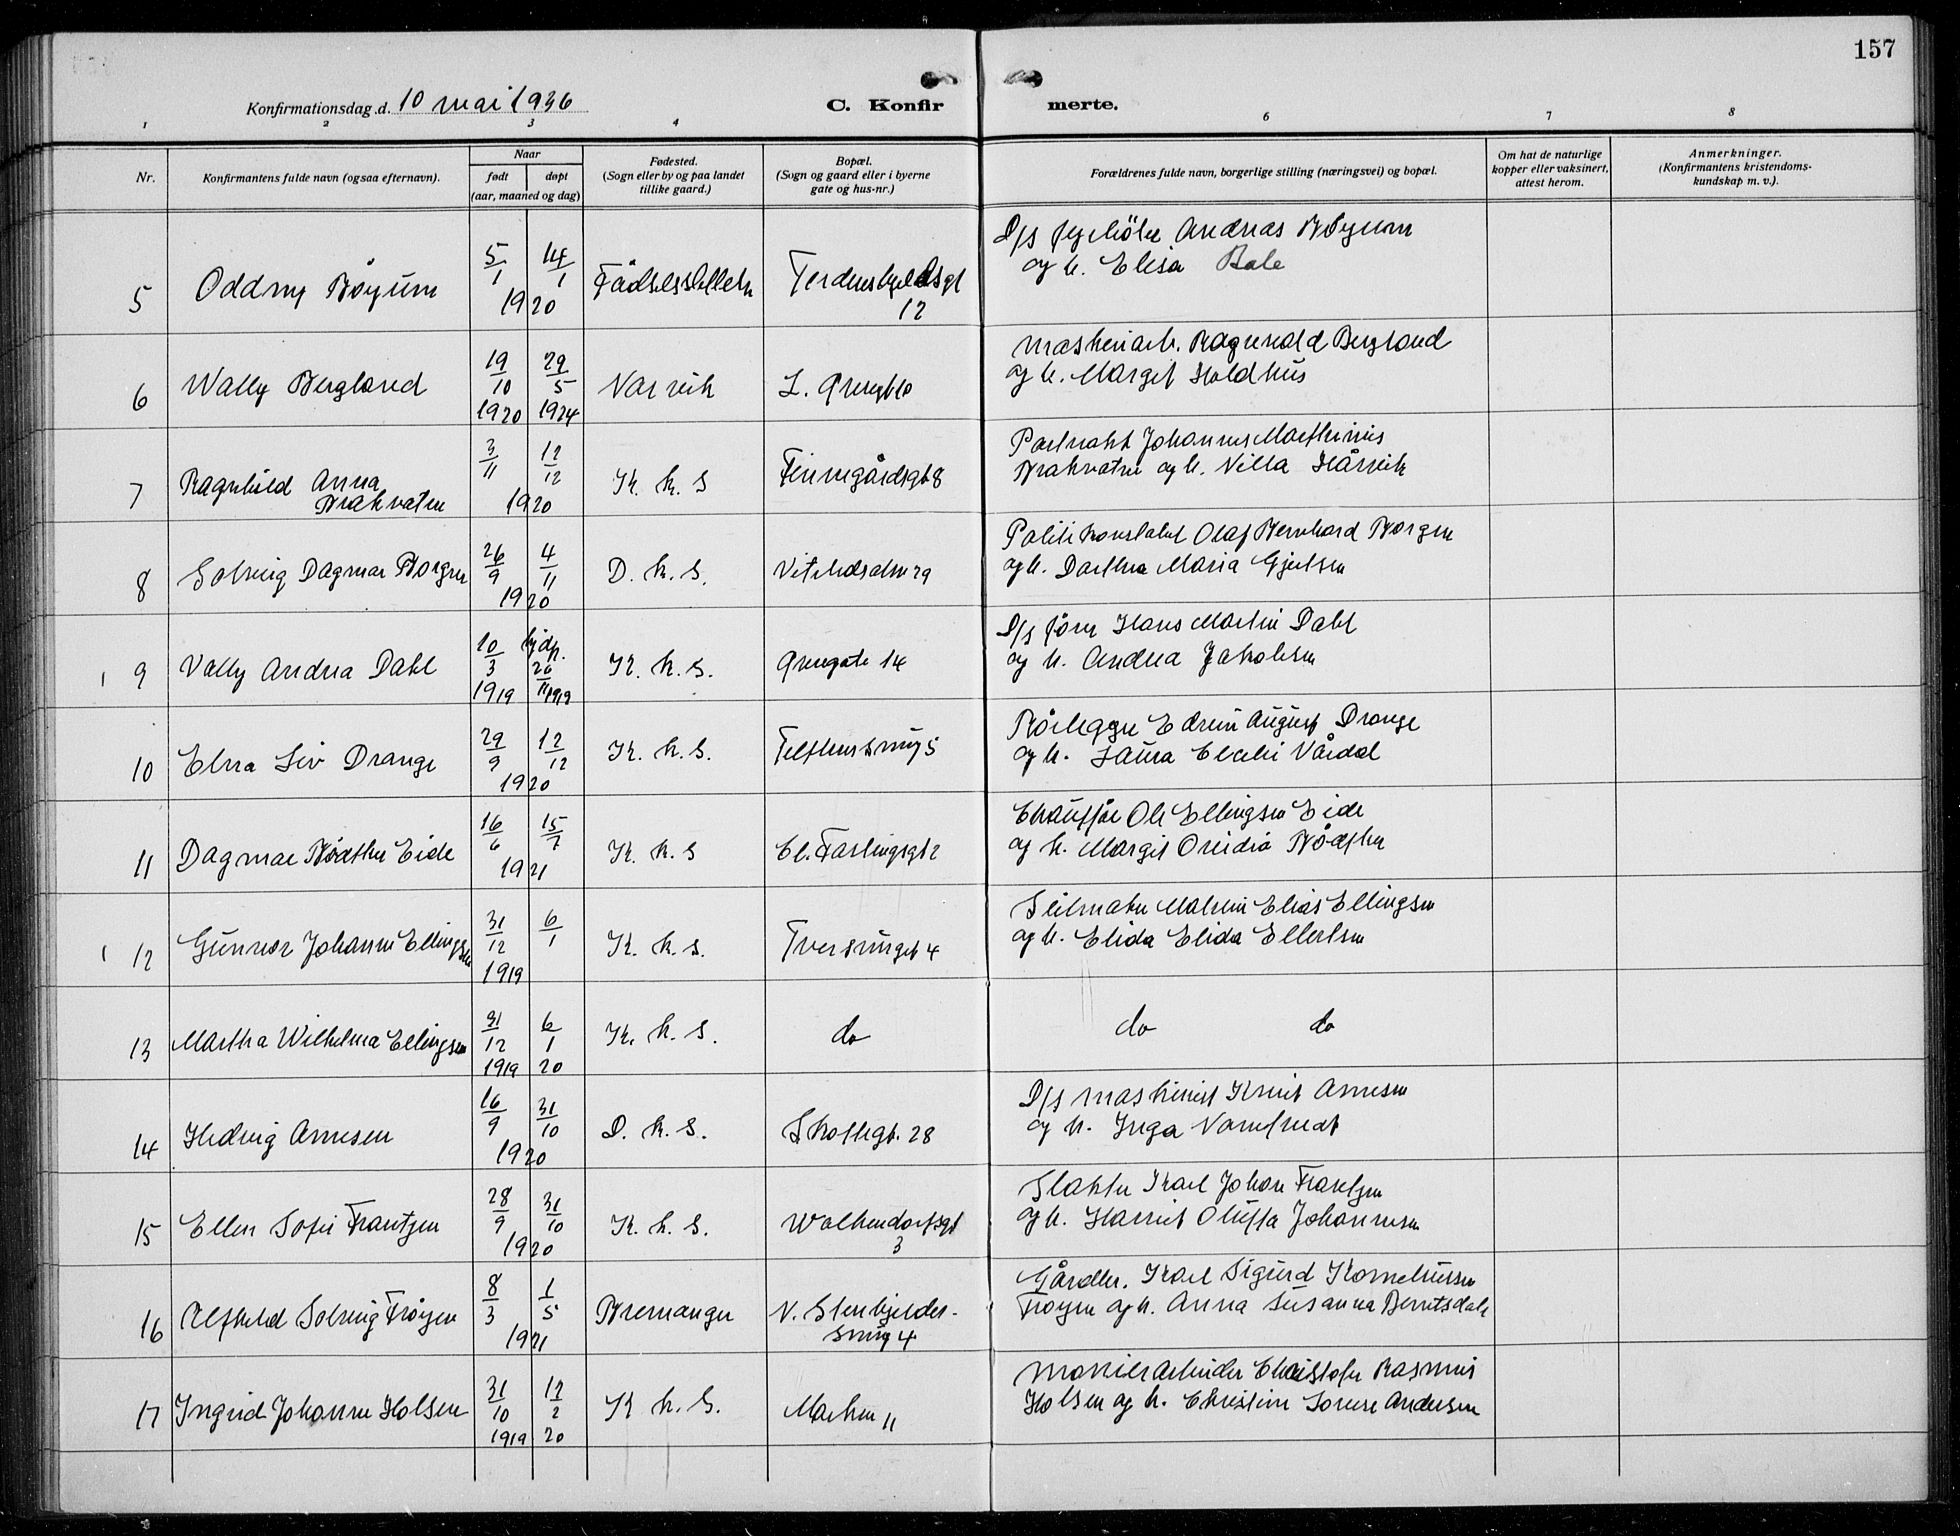 157
Konfirmationsdag d. 10 mai 1936
C. Konfirmerte.
1 2 3 4 6 7 8
Nr.
Konfirmantens fulde navn (ogsaa efternavn).
Naar
født døpt
(aar, maaned og dag)
Fødested.
(Sogn eller by og paa landet
tillike gaard.)
Bopæl.
(Sogn og gaard eller i byerne
gate og hus-nr.)
Forældrenes fulde navn, borgerlige stilling (næringsvei) og bopæl.
Om hat de naturlige
kopper eller vaksinert,
attest herom.
Anmerkninger.
(Konfirmantens kristendoms-
kundskap m. v.).
5 Oddny Bøyum 5/1 14/1 1920 12
D/s Andreas Bøyum
og h. Elisa Bale
6 Wally Bergland 19/10 1920 29/5 1924 Narvik
Ragnvald Bergland
og h. Margit Holdhus
7 Ragnhild Anna
Brakvatne 3/11 12/12 1920 K. k. S Finnegårdsgt 8
Johannes Marthinus
Brakvatne og h. Villa Hårvik
8 Solveig Dagmar Borgen 26/9 4/11 1920 D. k. S. 29
Politikonstabel Olaf Bernhard Borgen
og h. Dorthea Maria Gjertsen
1 9 Vally Andrea Dahl 10/3 1919 hjdp. 26/11 1919 K. k. S. Grensgate 14
D/s Hans Martin Dahl
og h. Andrea Jakobsen
10 Elna Liv Drange 29/9 12/12 1920 K. k. S. 5
Rørlegger Edvin August Drange
og h. Laura Elvebi Vårdal
11 Dagmar Bødtker Eide 16/6 15/7 1921 K. k. S Cl. Fastingsgt 2
Chauffør Ole Ellingsen Eide
og h. Margit Ovidia Bødtker
1 12 Gunvor Johanne Ellingsen 31/12 1919 6/1 K. k. S. 4
Seilmaker Elias Ellingsen
og h. Elida Elida Ellertsen
13 Martha Wilhelma Ellingsen 31/12 1919 6/1 20 K. k. S. do
do do
14 Hedvig Arnesen 16/9 31/10 1920 D. k. S. 28
D/s maskinist Knut Arnesen
og h. Inga
15 Ellen Sofie Frantzen 28/9 31/10 1920 K. k. S. Wolkendorfsgt
3
Slakter Karl Johan Frantzen
og h. Harriet Oluffa Johannesen
16 Alfhild Solveig Frøyen 8/3 1/5 1921 Bremanger N. Stenkjelder-
smug 4
Gårdbr. Karl Sigurd Korneliussen
Frøyen og h. Anna Susanna Berntsdale
17 Ingrid Johanne Holsen 31/10 1919 12/2 20 K k. S. Marken 11
Christofer Rasmus
Holsen og h. Christine Sorine Andersen